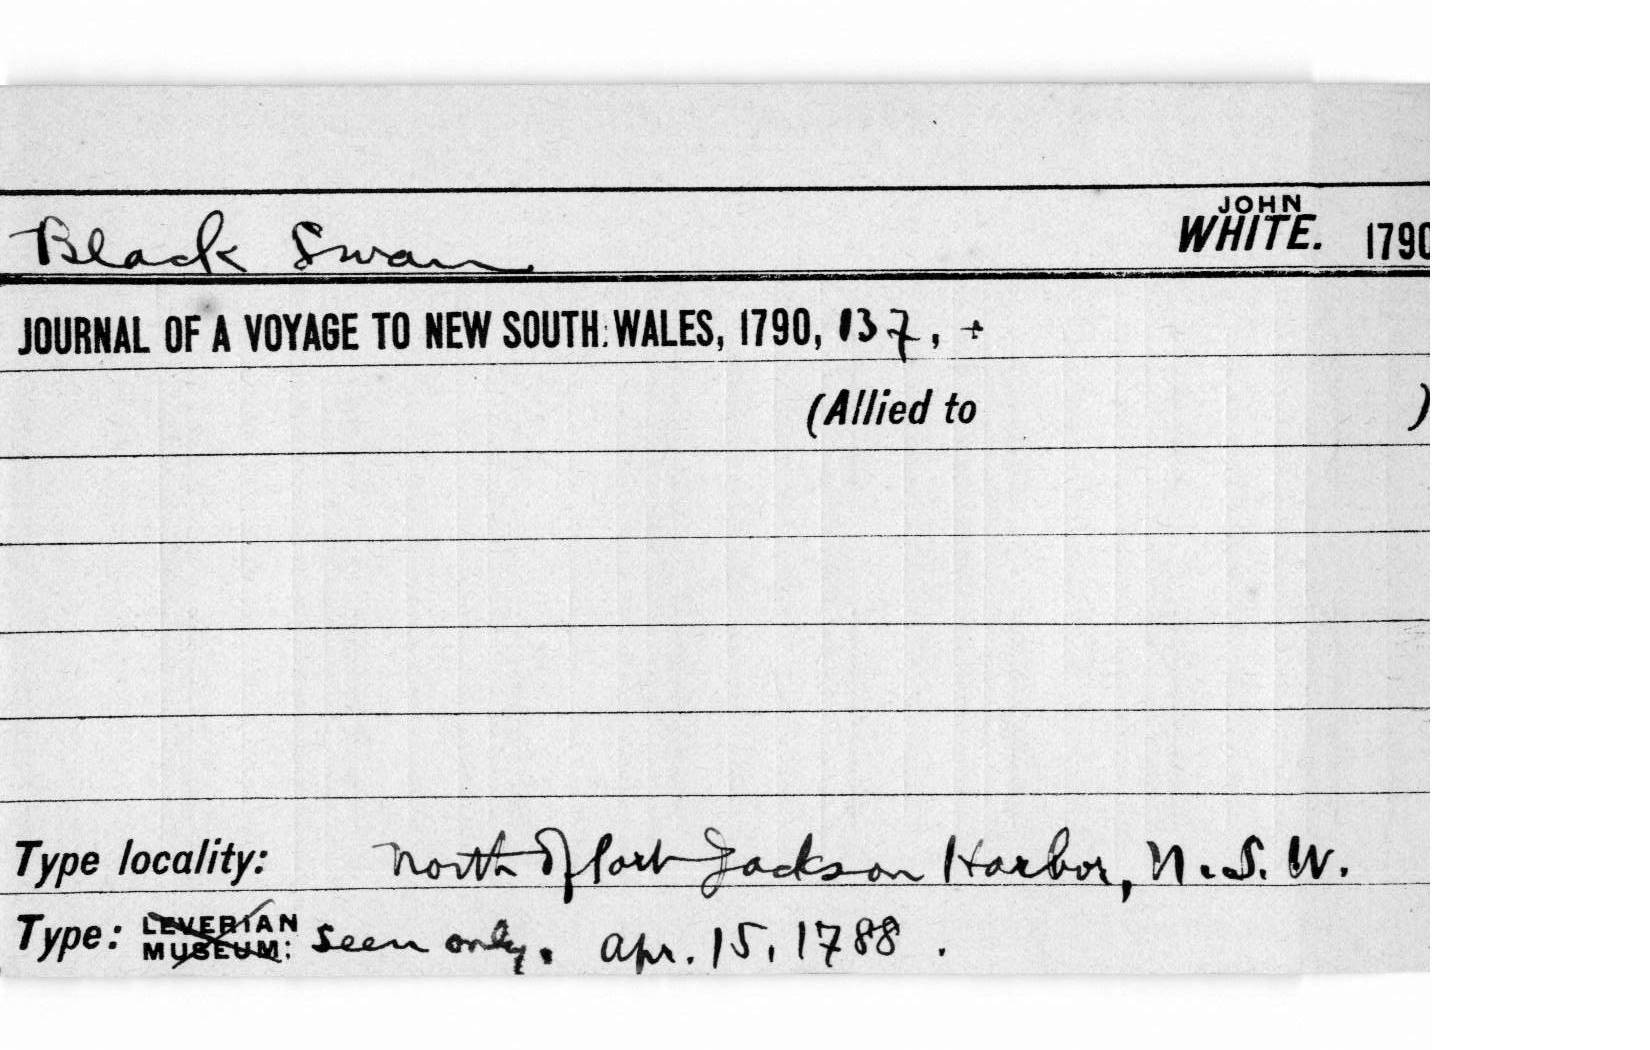 Black Swan JOHN WHITE. 1790
JOURNAL OF A VOYAGE TO NEW SOUTH WALES, 1790, 137, +
(Allied to )
Type locality: North of Port Jackson Harbor, N.S.W.
Type: LEVERIAN MUSEUM: seen only. Apr. 15, 1788.